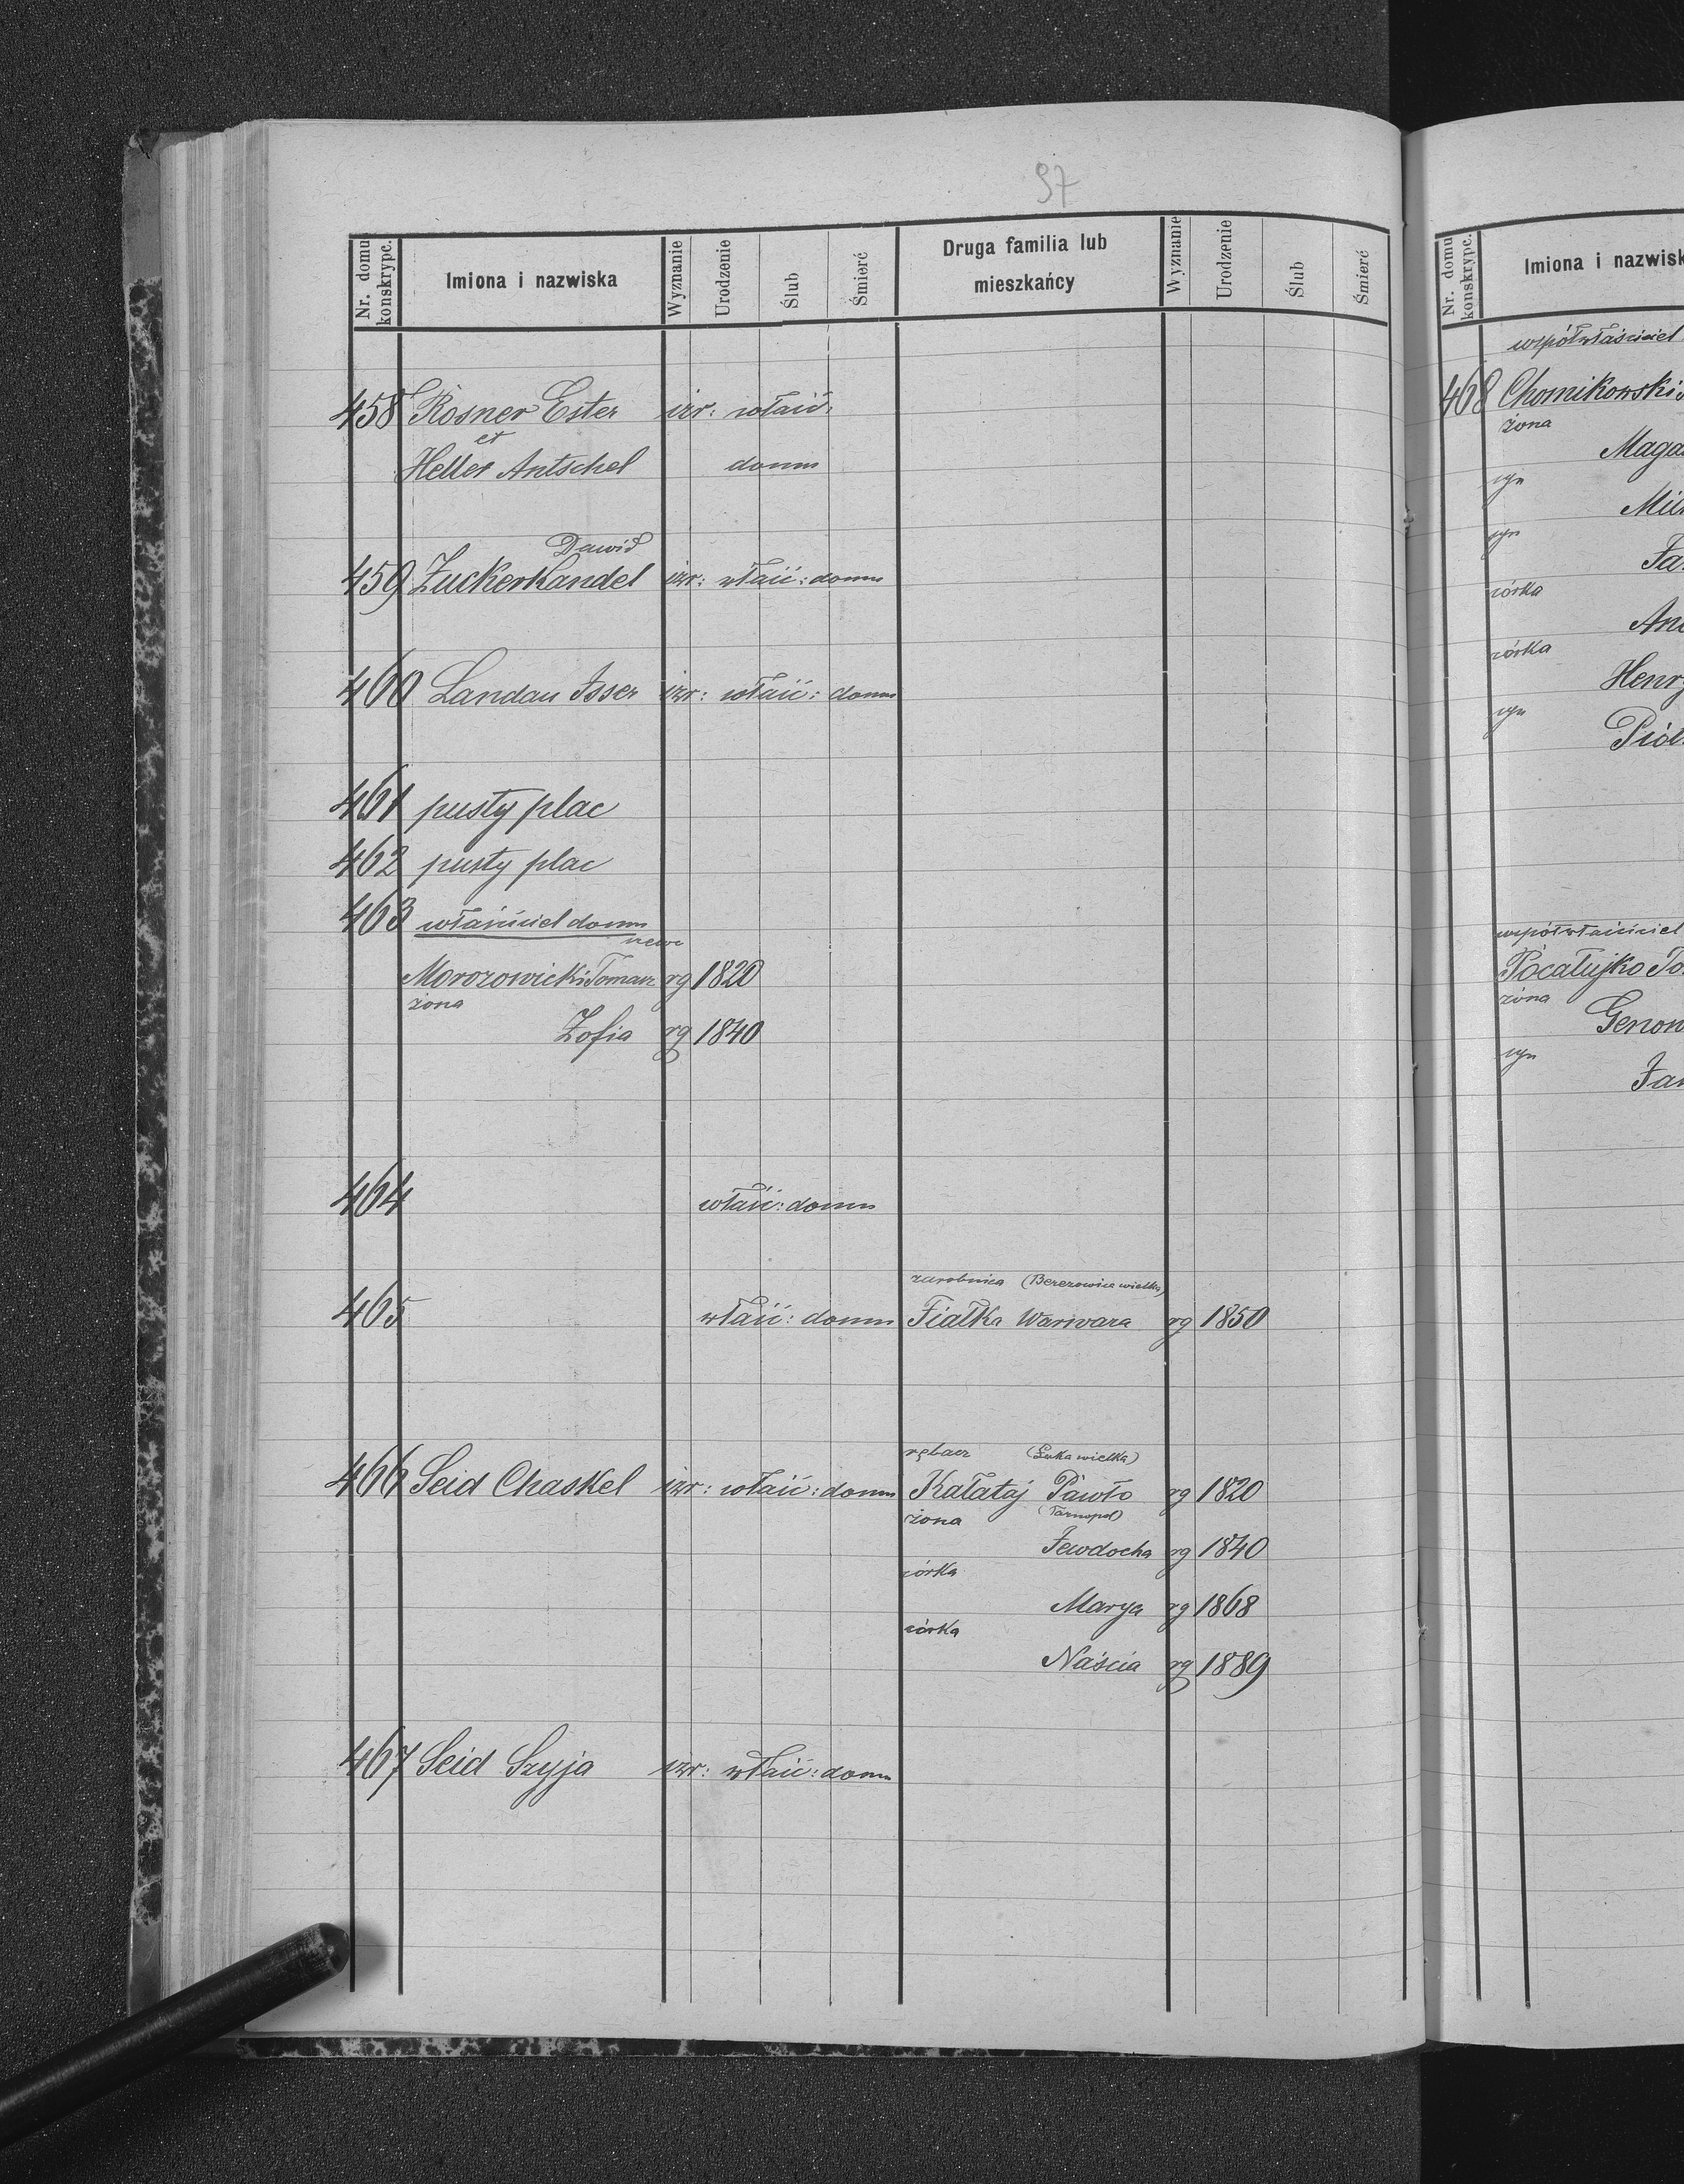 97
Nr. domu konskrypc. Imiona i nazwiska Wyznanie Urodzenie Ślub Śmierć Druga familia lub mieszkańcy Wyznanie Urodzenie Ślub Śmierć
458 Rosner Ester izr: właść:
et
Heller Antschel domu
Dawid
459 Zuckerkandel izr: właść: domu
460 Landau Isser izr: właść: domu
461 pusty plac
462 pusty plac
463 właściciel domu
Morozowicki Tomasz rg 1820
żona
Zofia rg 1840
464 właść: domu
zarobnica (Berezowica wielka)
465 właść: domu Fiałka Warwara rg 1850
rębacz (Łuka wielka)
466 Seid Chaskel izr: właść: domu Kałataj Pawło rg 1820
żona (Tarnopol)
Jewdocha rg 1840
córka
Marya rg 1868
córka
Naścia rg 1889
467 Seid Szyja izr: właść: domu
Nr. domu konskrypc. Imiona i nazwisk
współwłaściciel
468 Chomikowski
żona
Maga
syn
syn
córka
córka
Henry
syn
współwłaściciel
Pocałujko
żona
Genow
syn